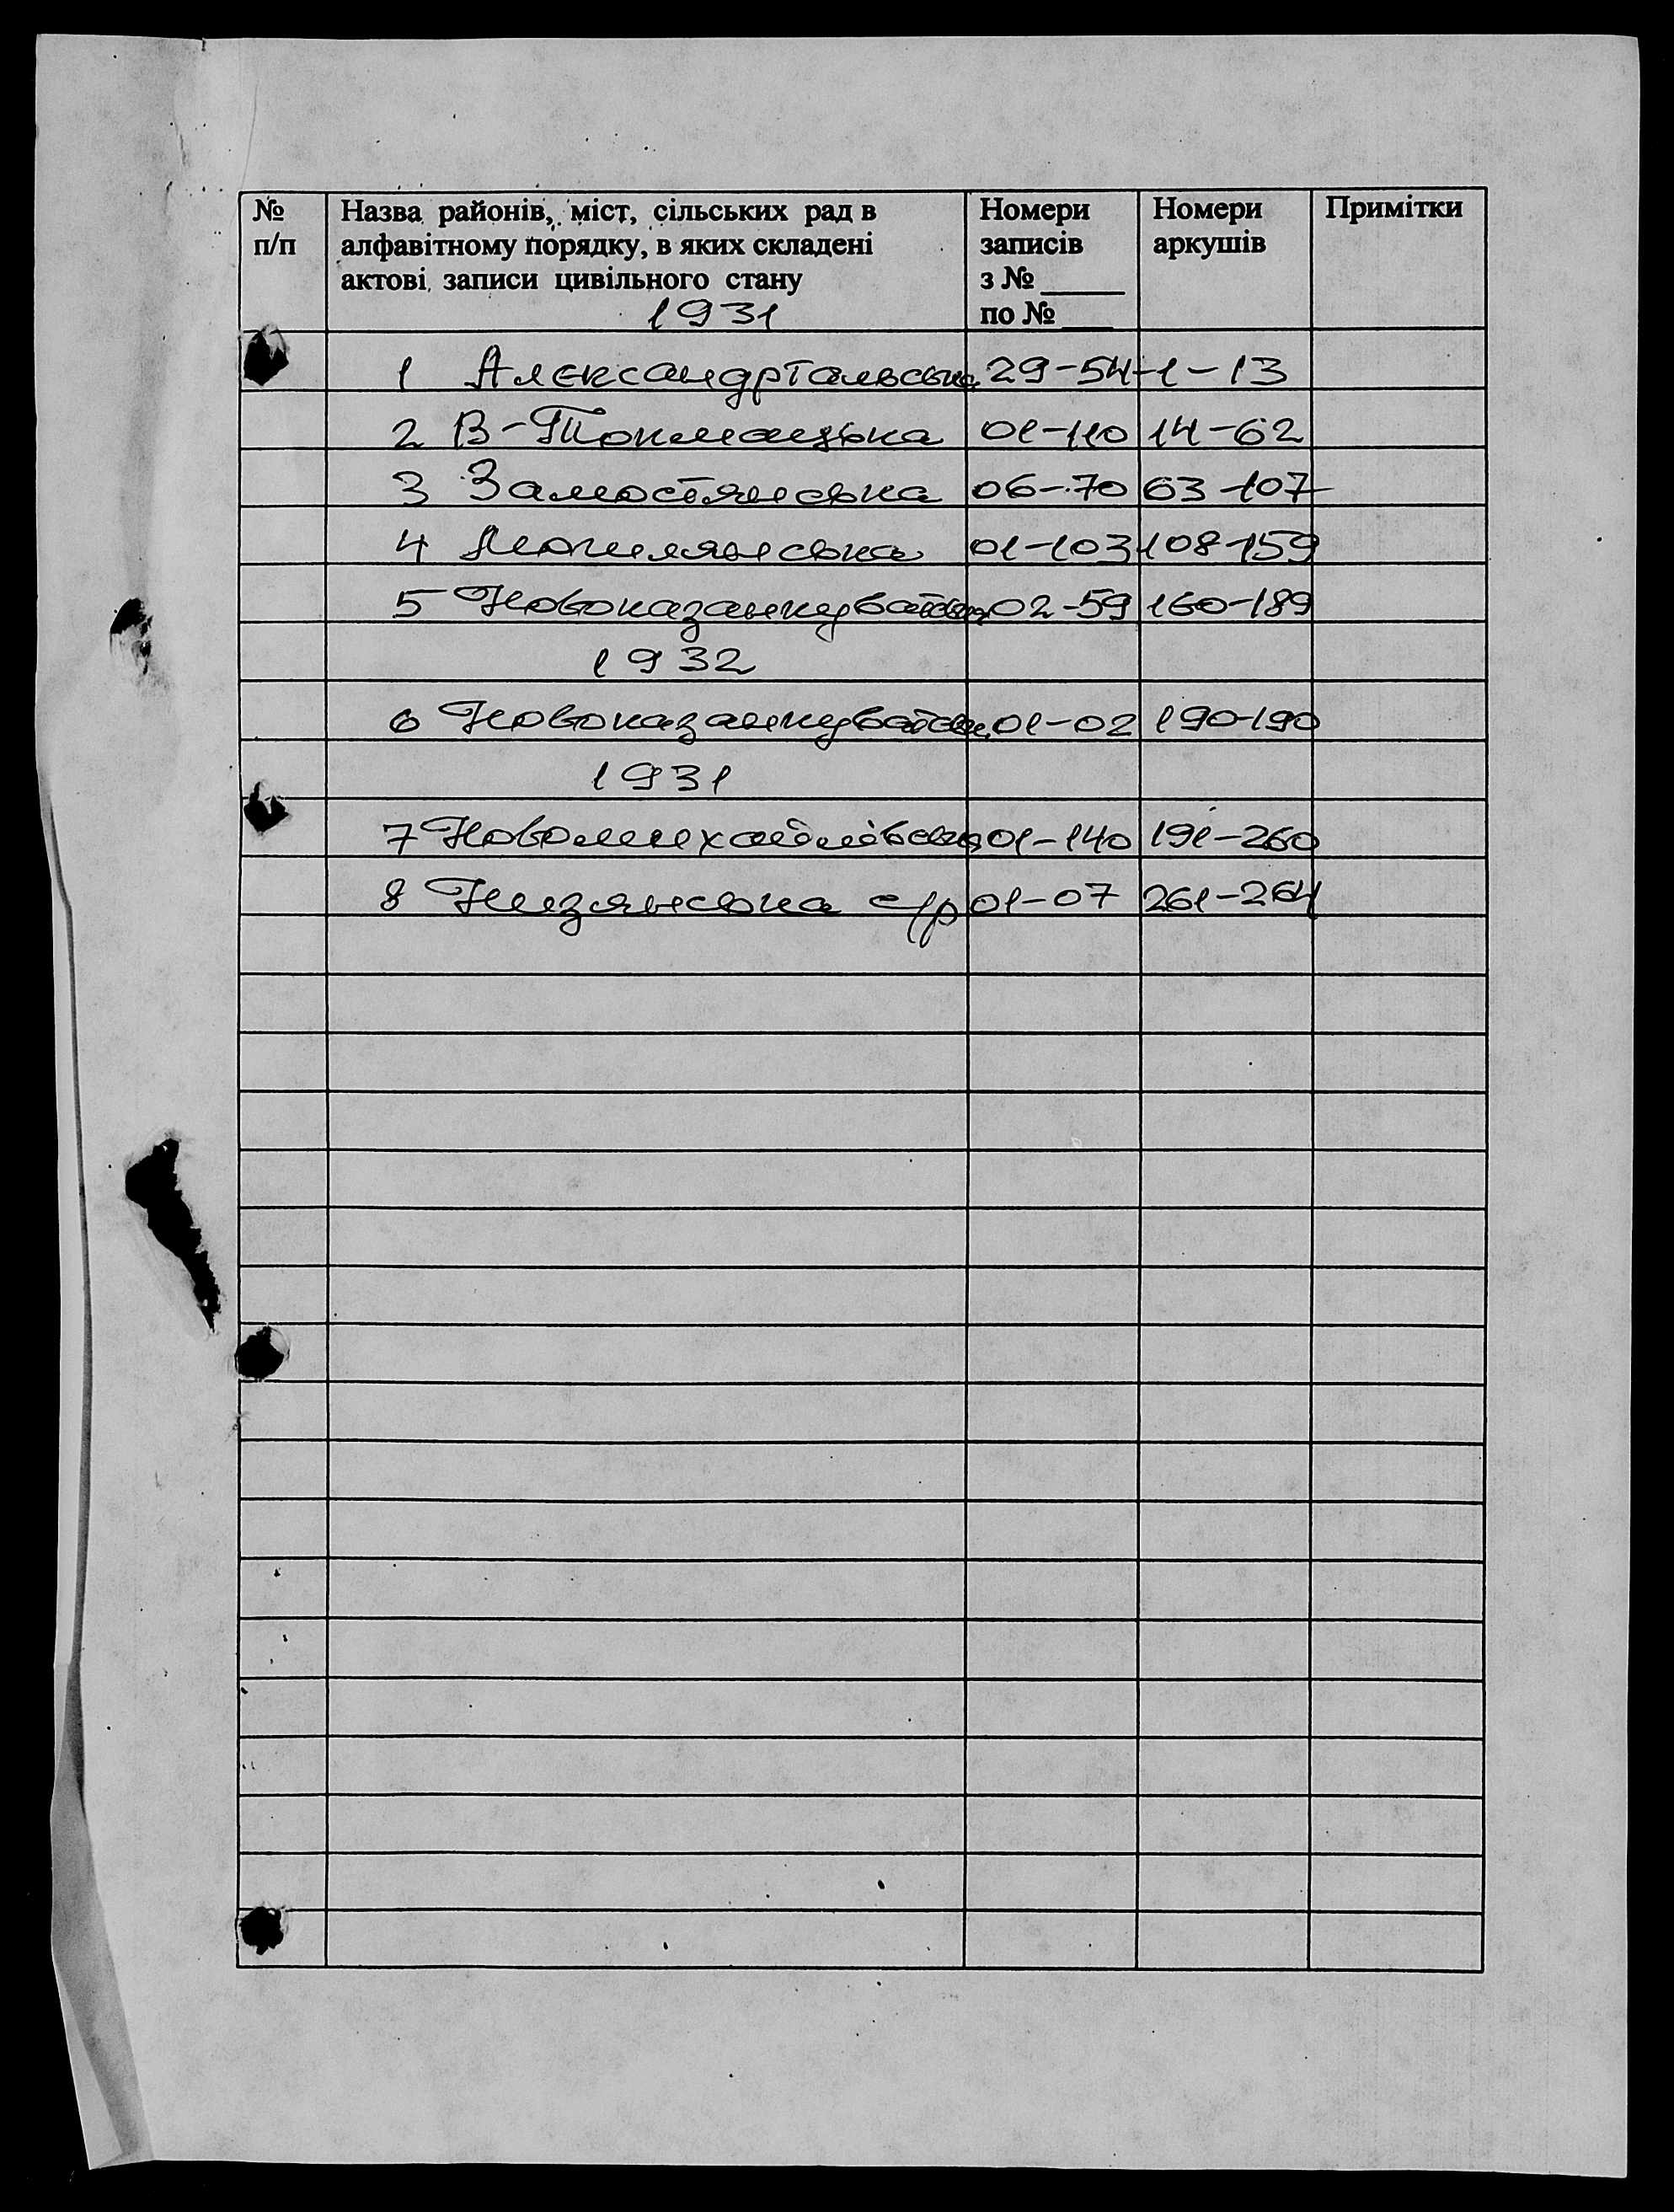 № п/п
Назва районів, міст, сільських рад в алфавітному порядку, в яких складені актові записи цивільного стану
Номери записів з № ____ по № ____
Номери аркушів
Примітки
1931
1 Александртальська 29-54 1-13
2 В-Токмацька 01-110 14-62
3 Замостянська 06-70 63-107
4 01-103 108-159
5 02-59 160-189
1932
6 01-02 190-190
1931
7 Новомихайлівська 01-140 191-260
8 Низянська с/р 01-07 261-264